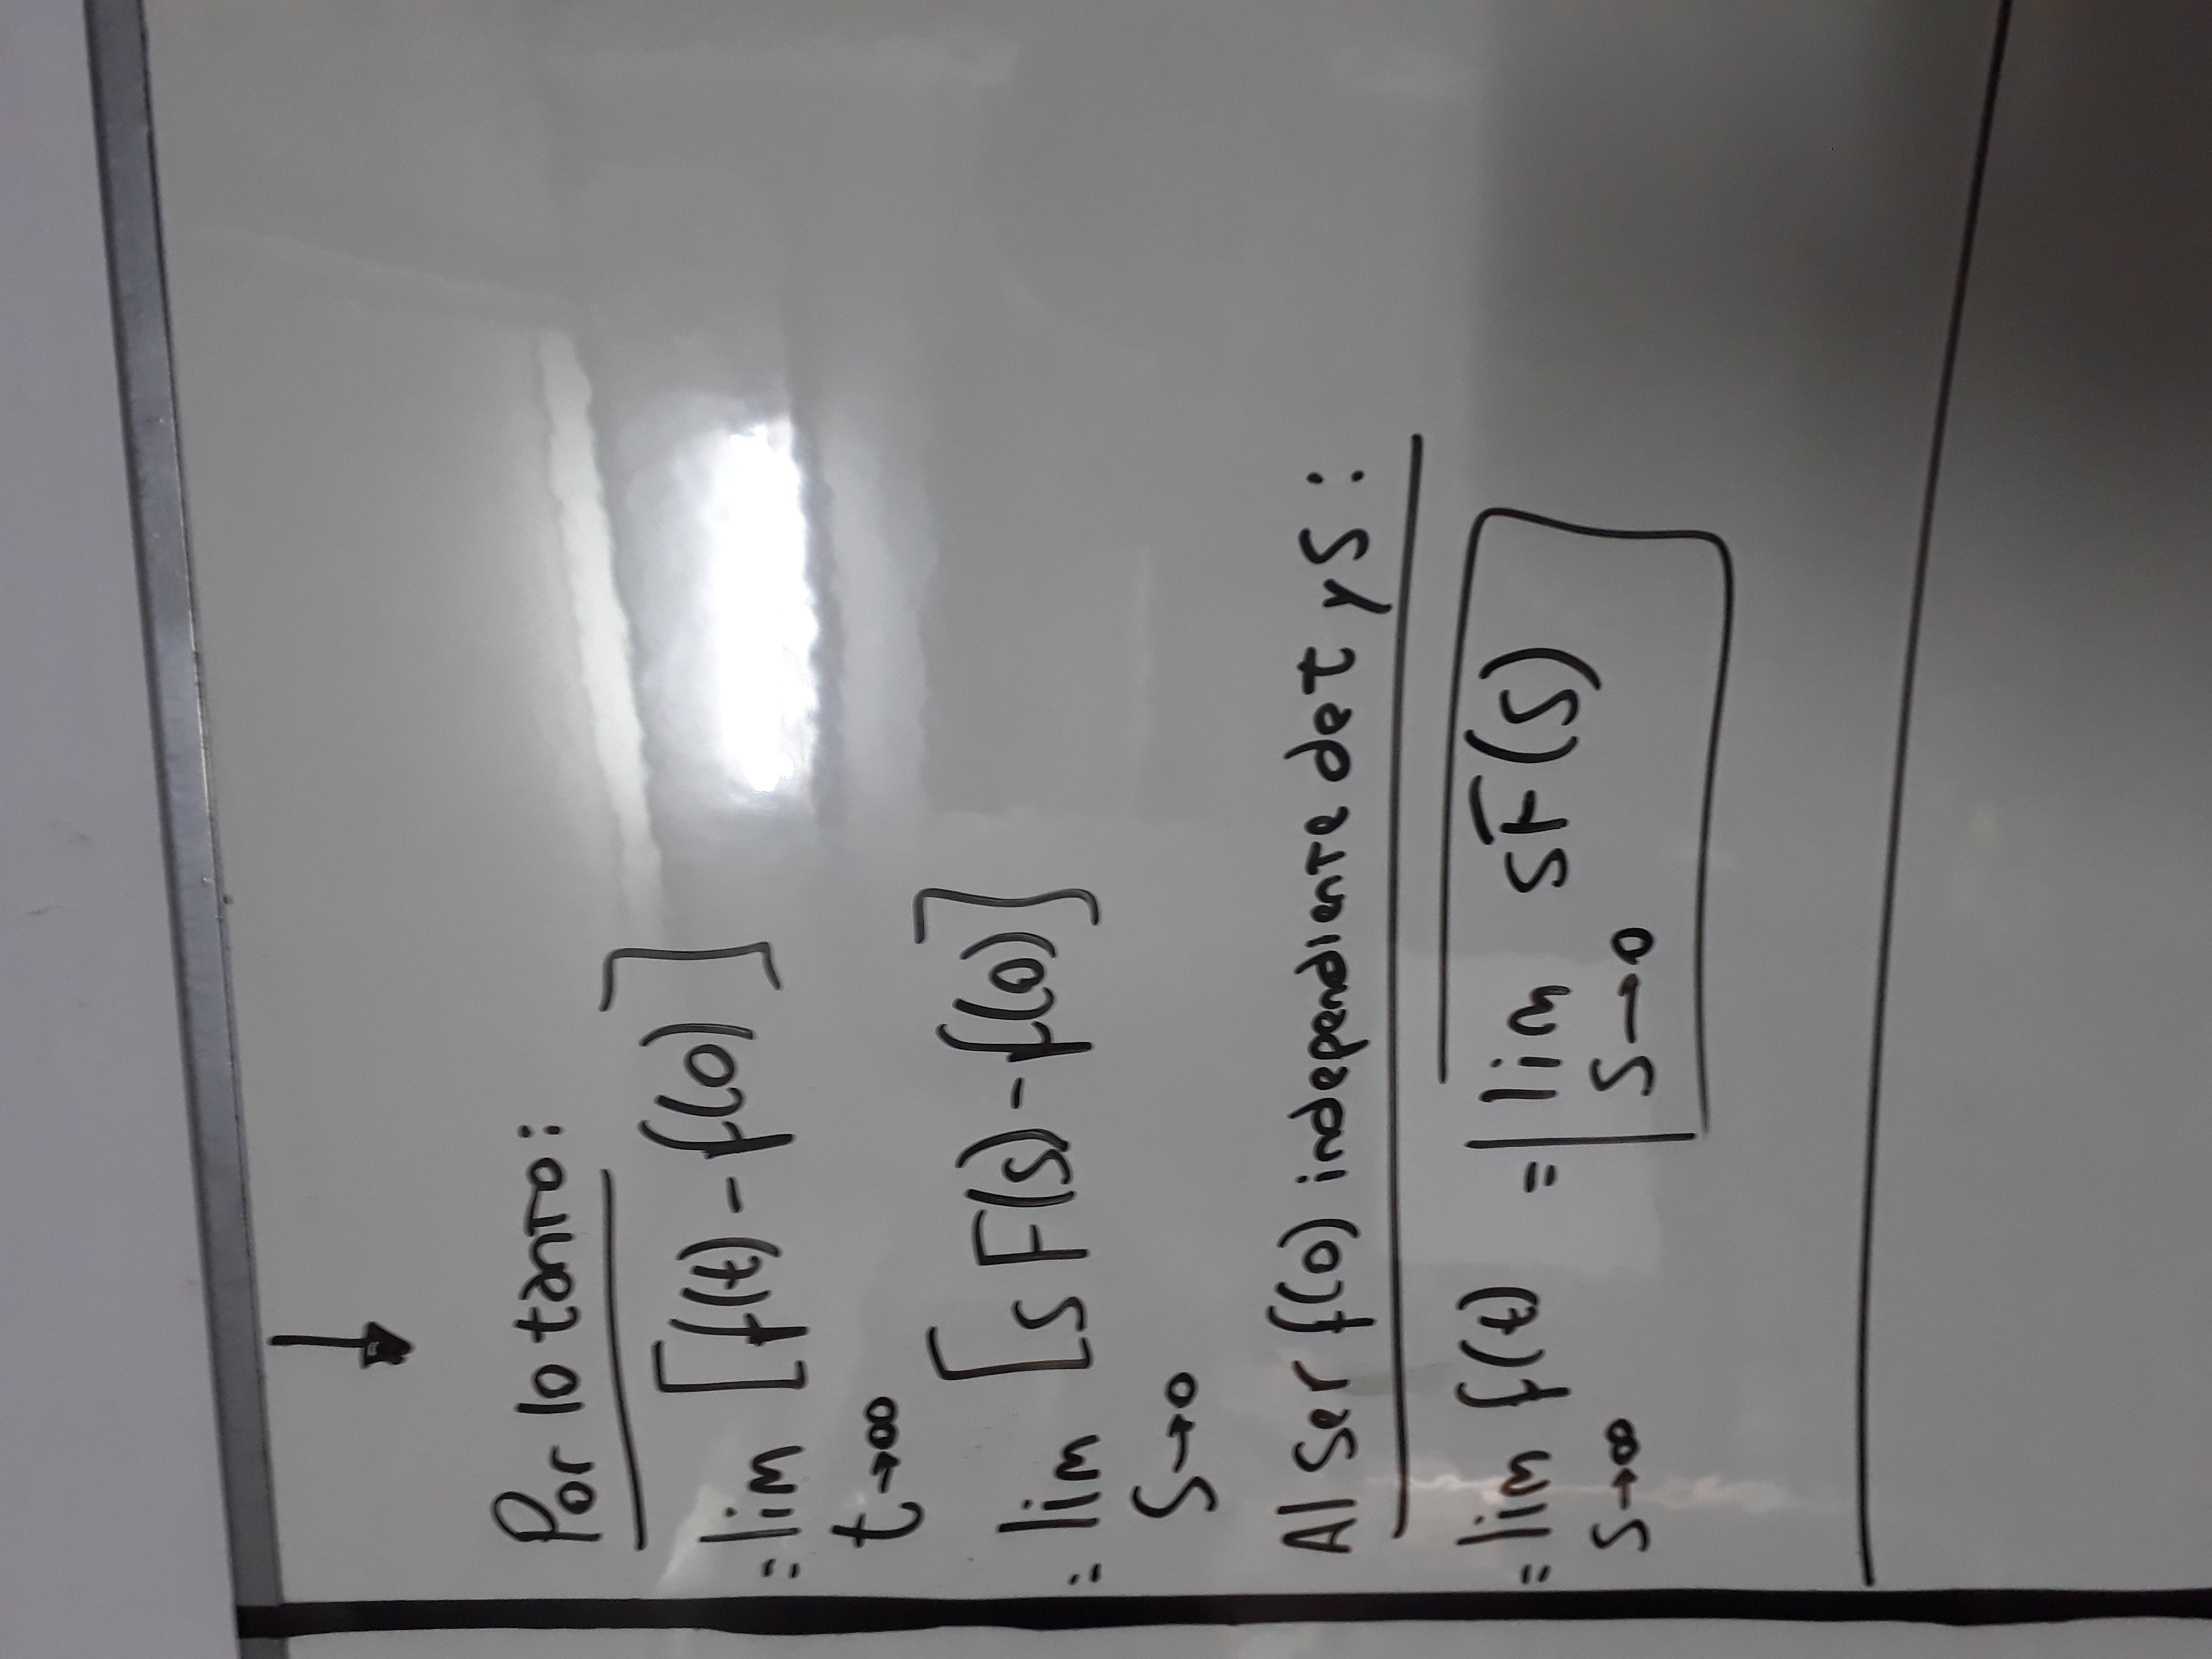 Por lo tanto:
= lim [f(t) - f(0)]
t→∞
= lim [s F(s) - f(0)]
s→0
Al ser f(0) independiente de t y s:
= lim f(t) = lim sF(s)
s→∞ s→0